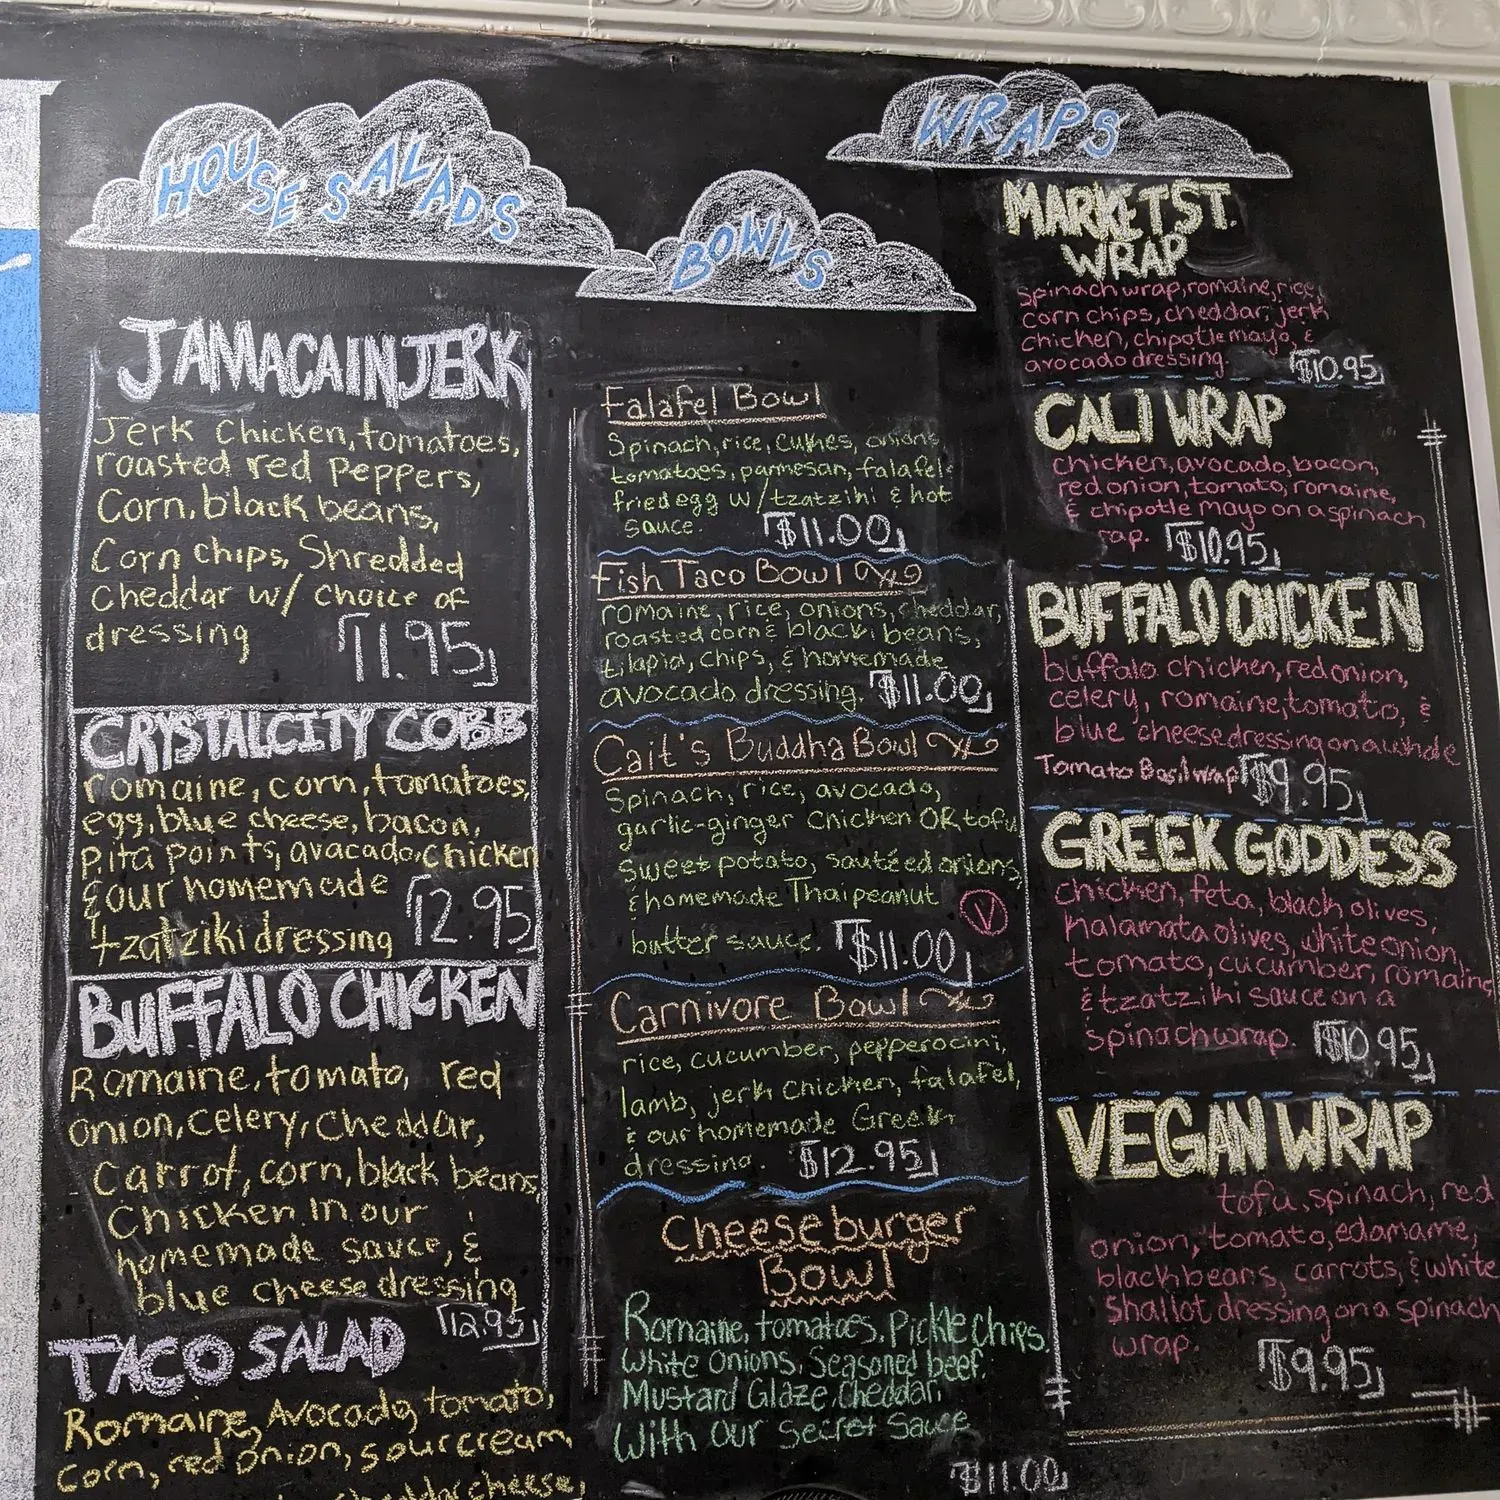 HOUSE SALADS
JAMACAIN JERK
Jerk Chicken, tomatoes,
roasted red Peppers,
Corn, black beans,
Corn chips, Shredded
Cheddar w/ choice of
dressing 11.95
CRYSTAL CITY COBB
romaine, corn, tomatoes,
egg, blue cheese, bacon,
pita points, avacado, chicken
& our homemade
tzatziki dressing 12.95
BUFFALO CHICKEN
Romaine, tomato, red
onion, celery, cheddar,
Carrot, corn, black beans,
Chicken in our
homemade sauce, &
blue cheese dressing
12.95
TACO SALAD
Romaine, Avocado, tomato,
Corn, red onion, sour cream
cheddar cheese,
BOWLS
Falafel Bowl
Spinach, rice, cukes, onions,
tomatoes, parmesan, falafel,
fried egg w/ tzatziki & hot
sauce. $11.00
Fish Taco Bowl
romaine, rice, onions, cheddar,
roasted corn & black beans,
tilapia, chips, & homemade
avocado dressing. $11.00
Cait's Buddha Bowl
Spinach, rice, avocado,
garlic-ginger chicken OR tofu
sweet potato, sautéed onions,
& homemade Thai peanut
butter sauce. V $11.00
Carnivore Bowl
rice, cucumber, pepperocini,
lamb, jerk chicken, falafel,
& our homemade Greek
dressing. $12.95
Cheeseburger
Bowl
Romaine, tomatoes, Pickle chips,
White onions, Seasoned beef,
Mustard Glaze, Cheddar,
With our Secret Sauce
$11.00
WRAPS
MARKET ST.
WRAP
Spinach wrap, romaine, rice,
corn chips, cheddar, jerk
chicken, chipotle mayo, &
avocado dressing. $10.95
CALI WRAP
chicken, avocado, bacon,
red onion, tomato, romaine,
& chipotle mayo on a spinach
rap. $10.95
BUFFALO CHICKEN
buffalo chicken, red onion,
celery, romaine, tomato, &
blue cheese dressing on a whole
Tomato Basil wrap $9.95
GREEK GODDESS
chicken, feta, black olives,
kalamata olives, white onion,
tomato, cucumber, romaine
& tzatziki sauce on a
spinach wrap. $10.95
VEGAN WRAP
tofu, spinach, red
onion, tomato, edamame,
black beans, carrots, & white
shallot dressing on a spinach
wrap. $9.95